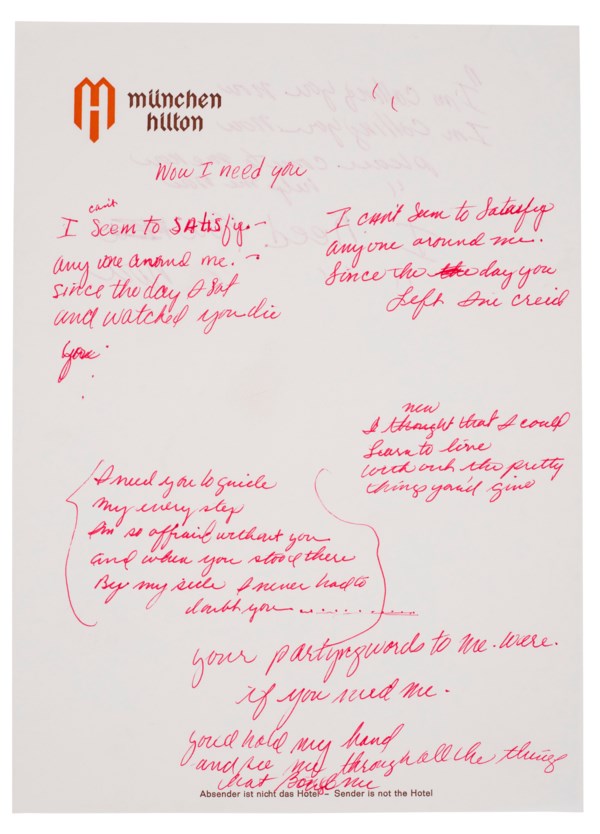 münchen
hilton
Now I need you
can't
I Seem to SAtisfy. –
any one around me. –
since the day I sat
and watched you die
you.
I can't Seem to Satasfy
anyone around me.
Since the the day you
Left Ive creid
new
I thought that I could
Learn to live
with out the pretty
things you'd give
I need you to guide
my every step
Im so affraid without you
and when you stood there
By my side I never had to
doubt you
your partyngwords to me. were.
if you need me.
you'd hold my hand
and see my through all the things
that me
Absender ist nicht das Hotel – Sender is not the Hotel